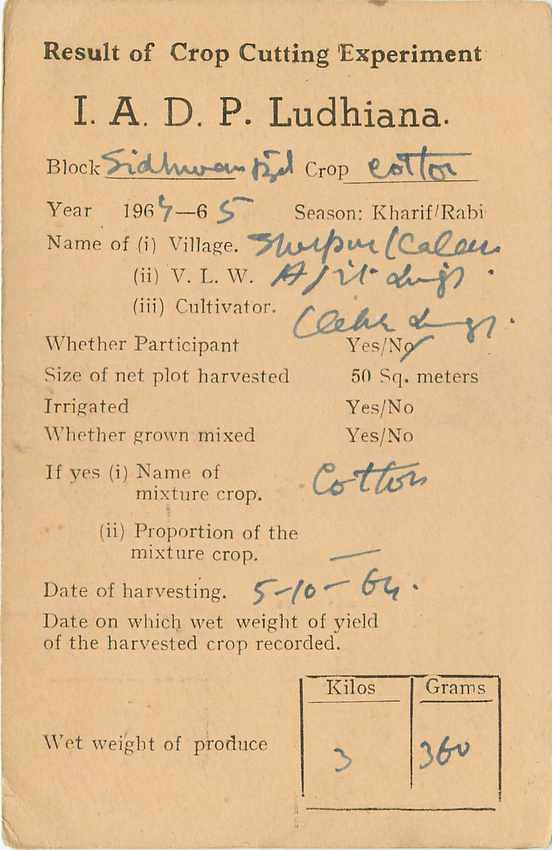 Result of Crop Cutting Experiment
I. A. D. P. Ludhiana.
Block Sidhwan Bet Crop Cotton
Year 1964—65 Season: Kharif/Rabi
Name of (i) Village. Sherpur Kalan
(ii) V. L. W. Ajit Singh.
(iii) Cultivator. Singh.
Whether Participant Yes/No
Size of net plot harvested 50 Sq. meters
Irrigated Yes/No
Whether grown mixed Yes/No
If yes (i) Name of
mixture crop. Cotton
(ii) Proportion of the
mixture crop. —
Date of harvesting. 5-10-64.
Date on which wet weight of yield
of the harvested crop recorded.
Kilos Grams
Wet weight of produce 3 360